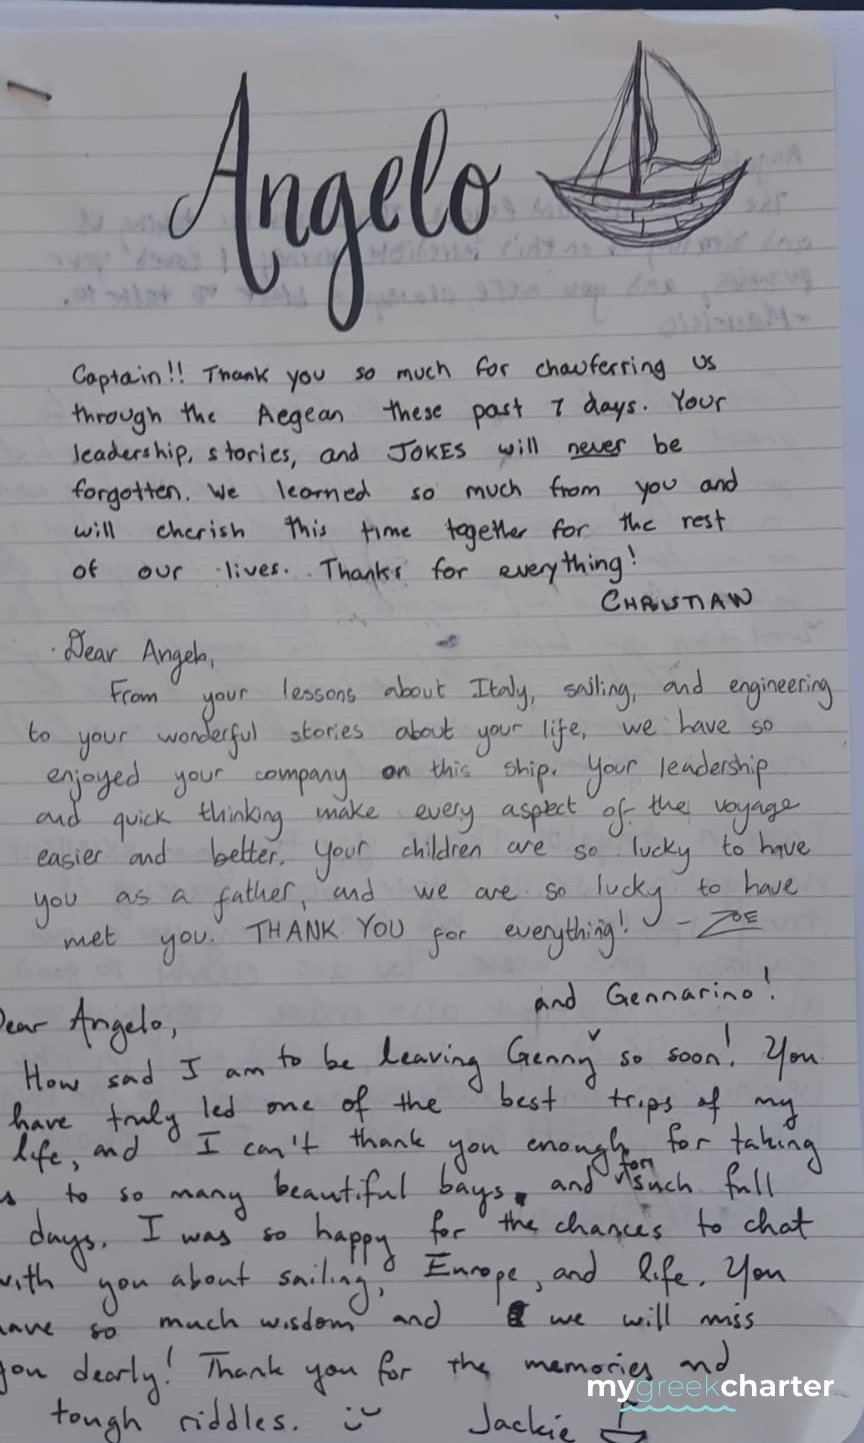 Angelo
Captain!! Thank you so much for chauferring us
through the Aegean these past 7 days. Your
leadership, stories, and JOKES will never be
forgotten. We learned so much from you and
will cherish this time together for the rest
of our lives. Thanks for everything!
CHRISTIAN
Dear Angelo,
From your lessons about Italy, sailing, and engineering
to your wonderful stories about your life, we have so
enjoyed your company on this ship. Your leadership
and quick thinking make every aspect of the voyage
easier and better. Your children are so lucky to have
you as a father, and we are so lucky to have
met you. THANK YOU for everything! - ZOE
and Gennarino!
Dear Angelo,
How sad I am to be leaving Genny so soon! You
have truly led one of the best trips of my
life, and I can't thank you enough for taking
s to so many beautiful bays. and for such full
days. I was so happy for the chances to chat
with you about sailing, Europe, and life. You
have so much wisdom and we will miss
you dearly! Thank you for the memories and
tough riddles. :)
Jackie
mygreekcharter